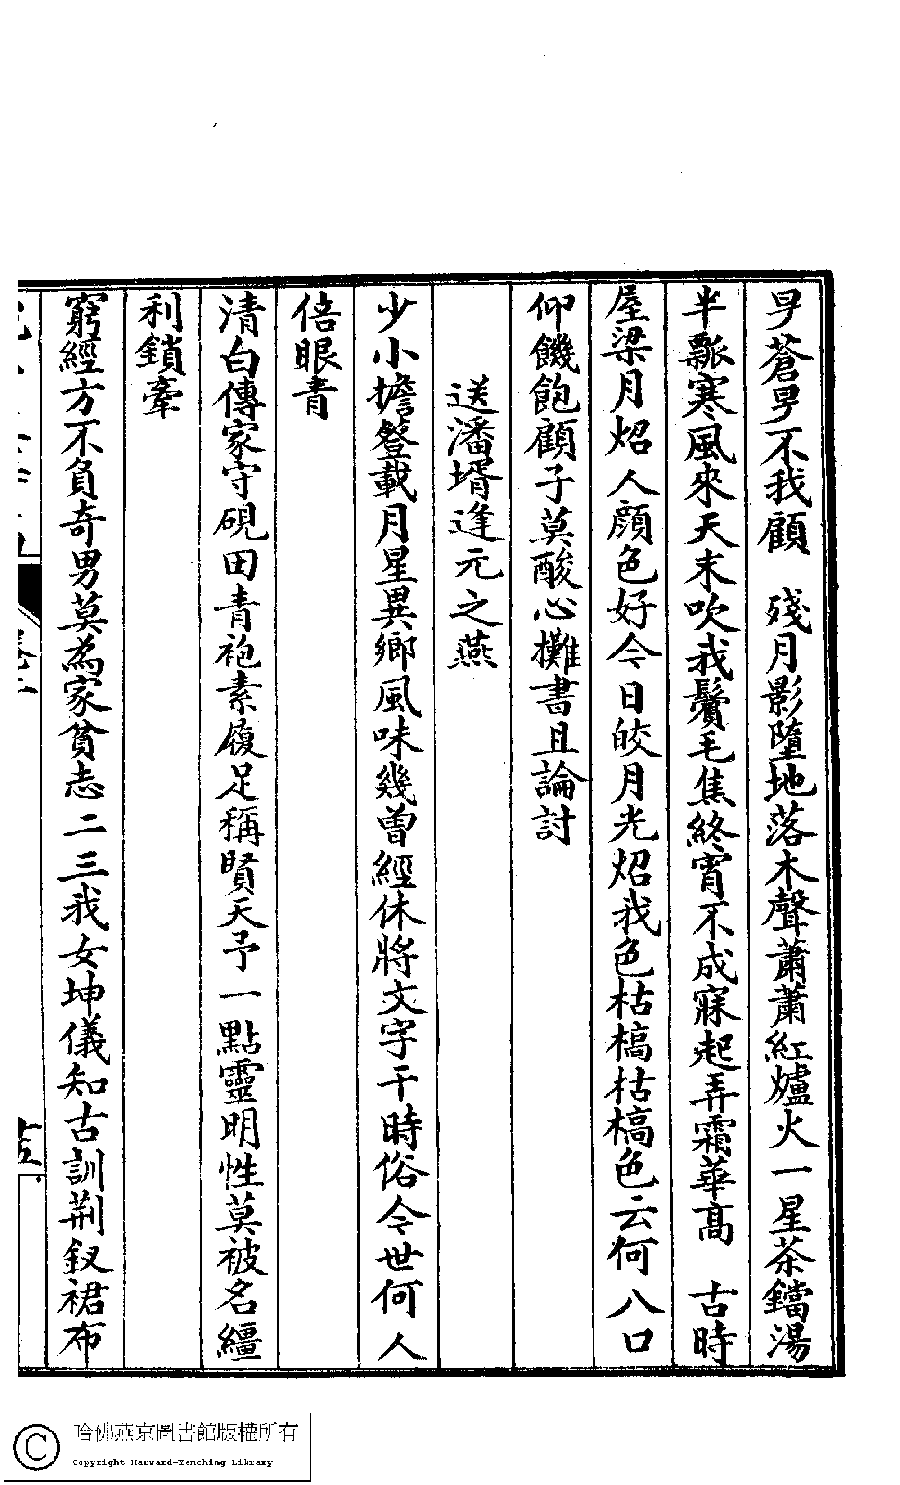 旻蒼旻不我顧　殘月影墮地落木聲蕭蕭紅爐火一星茶鐺湯
半瓢寒風來天末吹我鬢毛焦終宵不成寐起弄霜華高　古時
屋梁月炤人顏色好今日皎月光炤我色枯槁枯槁色云何八口
仰饑飽顧子莫酸心攤書且論討
送潘壻逢元之燕
少小擔簦載月星異鄉風味幾曾經休將文字干時俗今世何人
倍眼青
清白傳家守硯田青袍素履足稱賢天予一點靈明性莫被名繮
利鎖牽
窮經方不負奇男莫為家貧志二三我女坤儀知古訓荆釵裙布
哈佛燕京圖書館版權所有
Copyright Harvard-Yenching Library